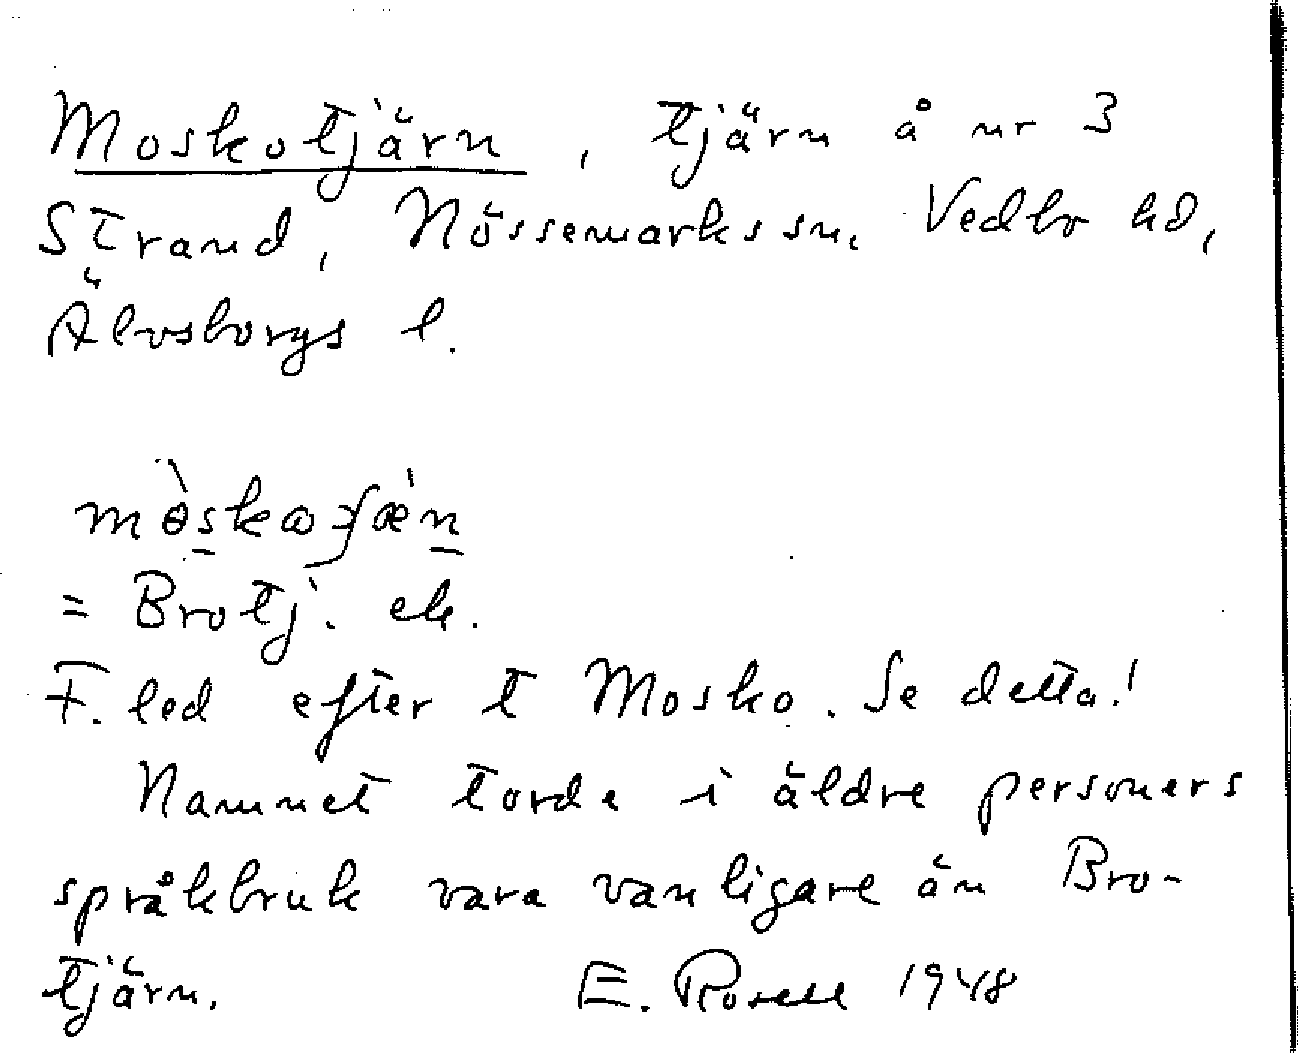 Moskotjärn, tjärn å nr 3
Strand, Nössemarks sn. Vedbo hd,
Älvsborgs l.
= Brotj. ek.
F. led efter t Mosko. Se detta!
Namnet torde i äldre personers
språkbruk vara vanligare än Bro-
tjärn. E. Rosell 1948